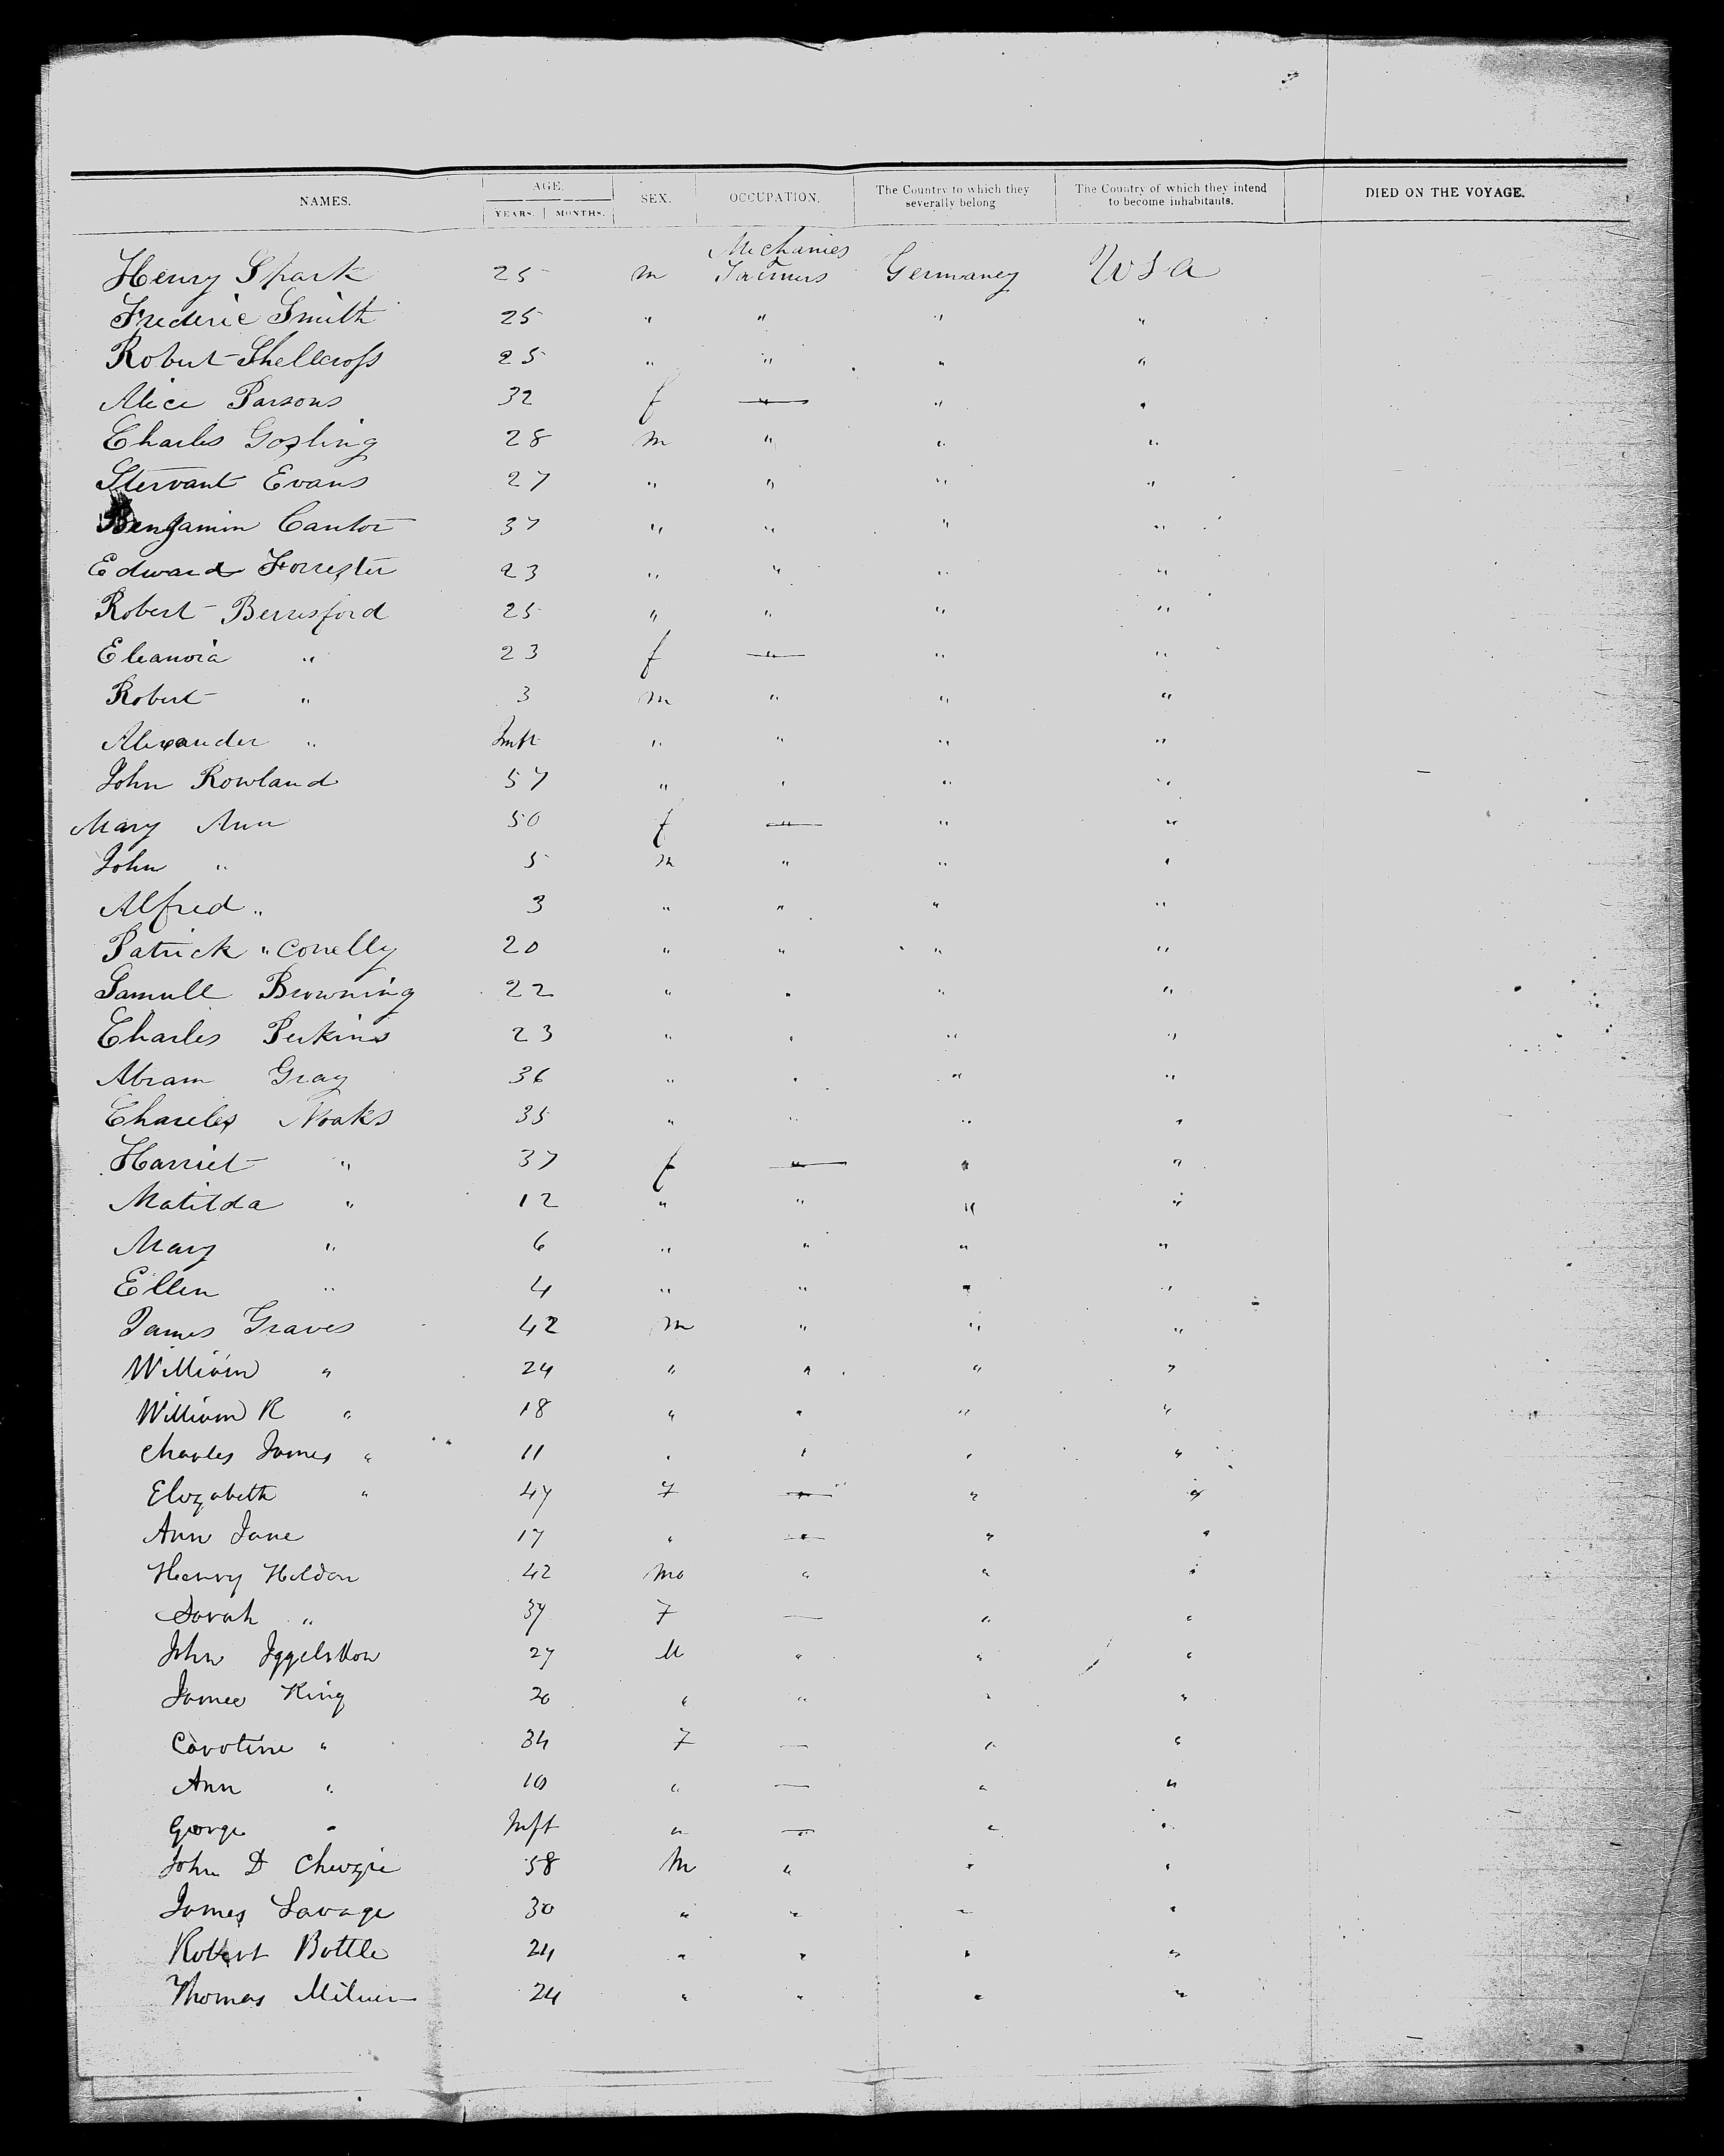 NAMES. AGE. SEX. OCCUPATION. The Country to which they severally belong The Country of which they intend to become inhabitants. DIED ON THE VOYAGE.
YEARS. MONTHS.
Mechanics
Henry Spark 25 m Farmers Germaney USA
Frederic Smith 25 " " " "
Robert Shellcross 25 " " " "
Alice Parsons 32 f " " "
Charles Gosling 28 m " " "
Stervant Evans 27 " " " "
Benjamin Cantor 37 " " " "
Edward Forrester 23 " " " "
Robert Berresford 25 " " " "
Eleanora " 23 f " " "
Robert " 3 m " " "
Alexander " Inft " " " "
John Rowland 57 " " " "
Mary Ann 50 f " " "
John " 5 m " " "
Alfred " 3 " " " "
Patrick " Conelly 20 " " " "
Samull Browning 22 " " " "
Charles Perkins 23 " " " "
Abram Gray 36 " " " "
Charles Noaks 35 " " " "
Harriet " 37 f " " "
Matilda " 12 " " " "
Mary " 6 " " " "
Ellen " 4 " " " "
James Graves 42 m " " "
William " 24 " " " "
William R " 18 " " " "
Charles James " 11 " " " "
Elizabeth " 47 F " " "
Ann Jane 17 " " " "
Henry Holdon 42 Ma " " "
Sarah " 37 F — " "
John Iggelston 27 M " " "
James King 20 " " " "
Carotine " 34 F — " "
Ann " 10 " — " "
George " Inft " " " "
John D 58 M " " "
James Savage 30 " " " "
Robert Bottle 24 " " " "
Thomas Milner 24 " " " "